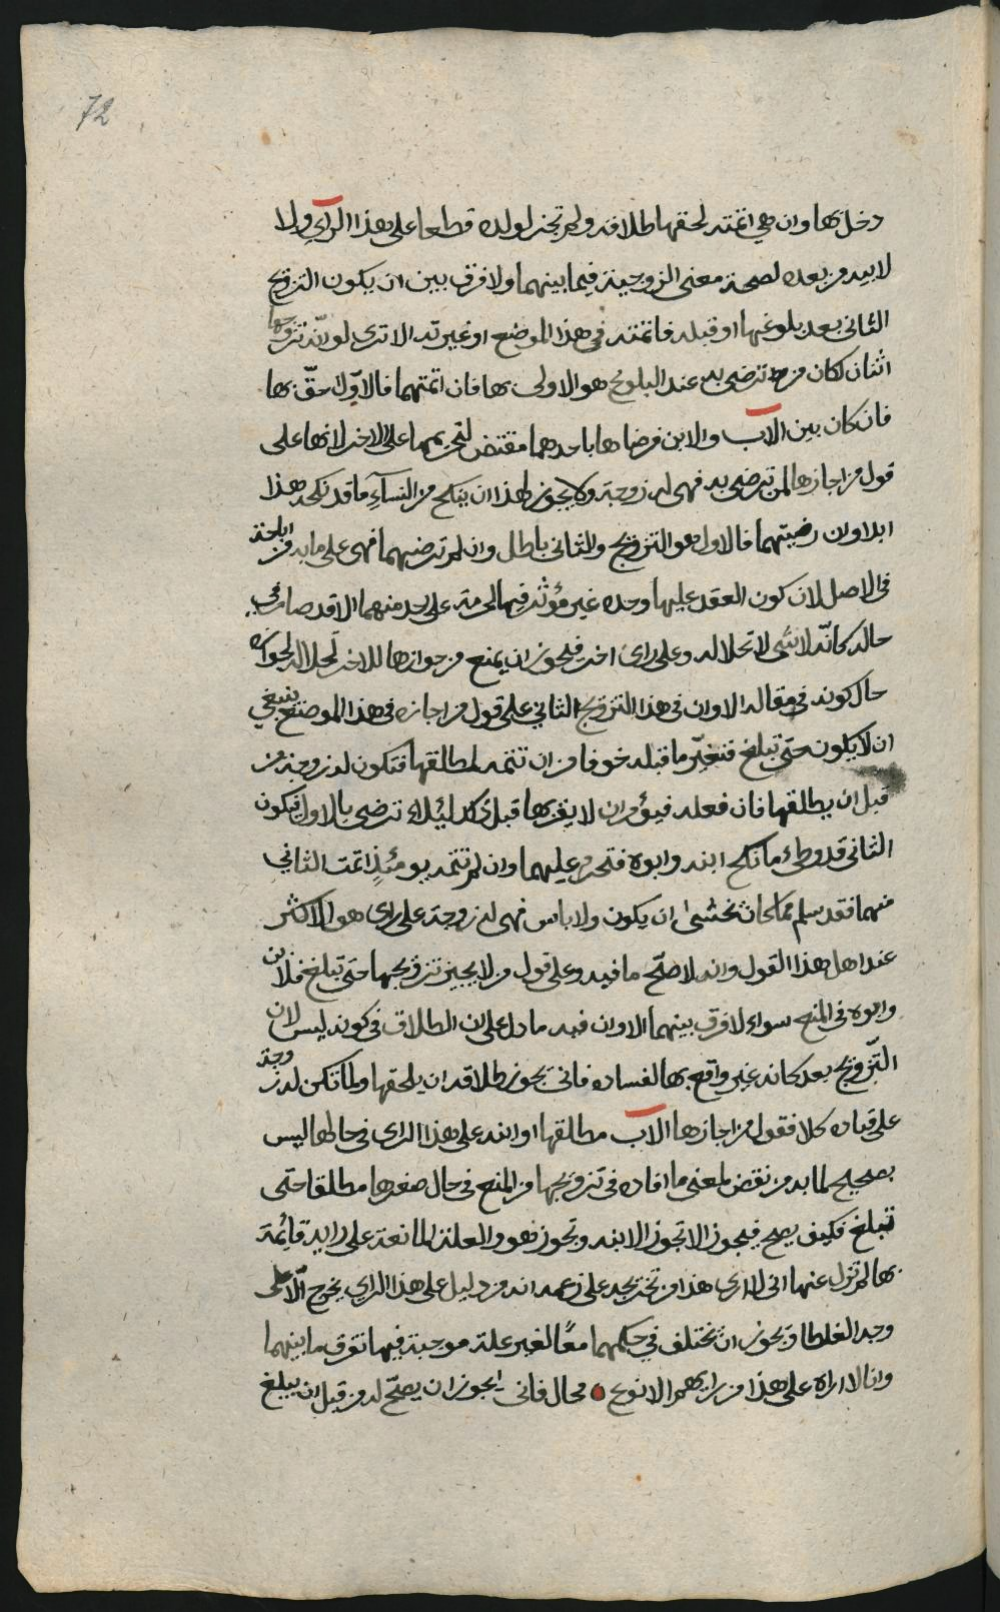 72
دخل بها وان هي اتمته لحقها طلاقه ولم تجز لولده قطعا على هذا الراي ولا
لابيه من بعده لصحة معنى الزوجية فيما بينهما ولا فرق بين ان يكون التزويج
الثاني بعد بلوغها او قبله فاتمته في هذا الموضع او غيرته الا ترى لو انه تزوجها
اثنان لكان من ترضى به عند البلوغ هو الاولى بها فان اتمتهما فالاول احق بها
فان كان بين الاب والابن فرضاها باحدهما مقتض لتحريمها على الاخر لانها على
قول من اجازها لمن ترضى به فهي له زوجة ولا يجوز لهذا ان ينكح من النساء ما قد نكحه هذا
ابدا وان رضيتهما فالاول هو التزويج والثاني باطل وان لم ترضهما فهي على ما به من اباحة
في الاصل لان كون العقد عليها وحده غير مؤثر فيها لحرمة على احد منهما الا قد صار في
حاله كانه لا شي لا تحلا له وعلى راي اخر فيجوز ان يمنع من جوازها للاخر لحلالاه لجوازه
حال كونه في مقاله الا وان في هذا التزويج الثاني على قول من اجازه في هذا الموضع ينبغي
ان لا يكون حتى تبلغ فتغير ما قبله خوفا من ان تتمه لمطالقها فتكون له زوجة من
قبل ان يطالقها فان فعله فيؤمر ان لا يقربها قبل ذلك لئلا ترضى بالاول فيكون
الثاني قد وطئ ما نكح ابنه وابوه فتحرم عليهما وان لم تتمه يومئذ اتمت الثاني
منهما فقد سلم مما كان يخشى ان يكون ولا باس فهي له زوجة على راي هو الاكثر
عند اهل هذا القول وانه لاصح ما فيه وعلى قول من لا يجيز تزويجها حتى تبلغ فالابن
وابوه في المنع سواء لا فرق بينهما الا وان فيه ما دل على ان الطلاق في كونه ليس لان
التزويج بعد كانه غير واقع بها لفساده فانى يجوز طلاقه ان يلحقها ولما تكن له زوجة
على قياده كلا فقول من اجازها الاب مطالقها او ابنه على هذا الراي في حالها ليس
بصحيح لما به من نقض لمعنى ما افاده في تزويجها من المنع في حال صغرها مطلقا حتى
تبلغ فكيف يصح فيجوز الا تجوز الابنه وتجوز هو والعلة المانعة على رايه قائمة
بها لم تزل عنها اني لا ارى هذا من تخريجه على زعمه انه من دليل على هذا الراي يخرج الا على
وجه الغلط او يجوز ان تختلف في حكمهما معًا لغير علة موجبة فيها تفرق ما بينهما
وانا لا اراه على هذا من رايهم الا نوع محال فانى يجوز ان يصح له من قبل ان يبلغ